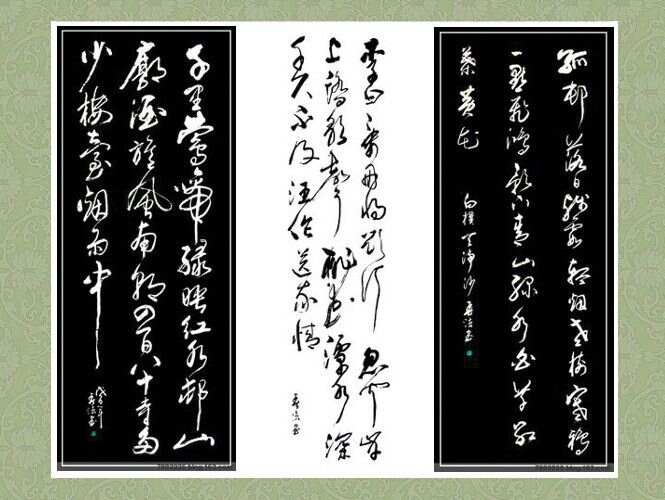 孤邨落日残霞轻烟老树寒鸦
一點飛鴻影下青山绿水白草红
葉黄花
白樸天净沙
李白乘舟将欲行忽闻岸
上踏歌聲桃花潭水深
千尺不及汪伦送我情
千里莺啼绿映红水邨山
郭酒旗風南朝四百八十寺多
少楼臺烟雨中